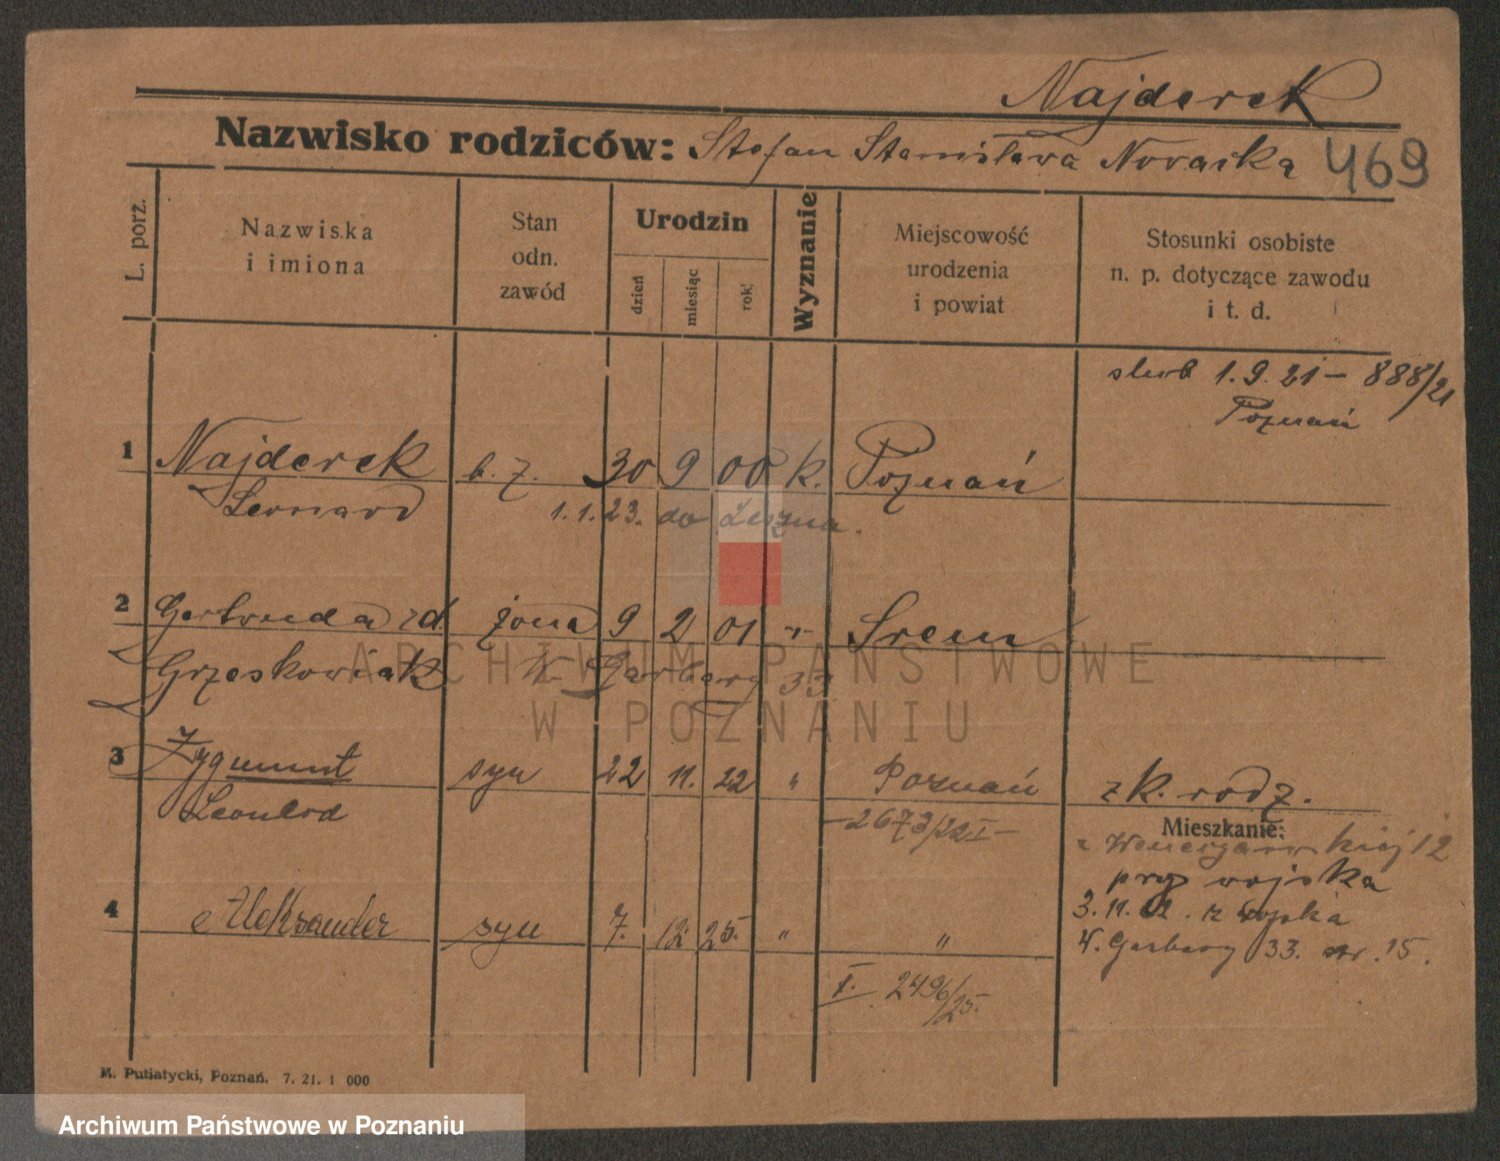 Najderek
Nazwisko rodziców: Stefan Stanisława Novaćka 469
L. porz.
Nazwiska
i imiona
Stan
odn.
zawód
Urodzin
dzień
miesiąc
rok
Wyznanie
Miejscowość
urodzenia
i powiat
Stosunki osobiste
n. p. dotyczące zawodu
i t. d.
slub 1.9.21 – 888/21
Poznań
1 Najderek 30 9 00 k. Poznań
Leonard 1.1.23. do Leszna.
2 Gertruda zd. żona 9 2 01 -"- Srem
Grzeskowiak Garbary 33
3 Zygmunt syn 22 11. 22 " Poznań z k. rodz.
Leonard -2673/22 I-
Mieszkanie:
12
przy wojska
3.11. z wojska
4 Aleksander syn 7. 12. 25. " "
W. Garbary 33. 15.
I. 2496/25.
M. Putiatycki, Poznań. 7. 21. 1 000
ARCHIWUM PAŃSTWOWE
W POZNANIU
Archiwum Państwowe w Poznaniu